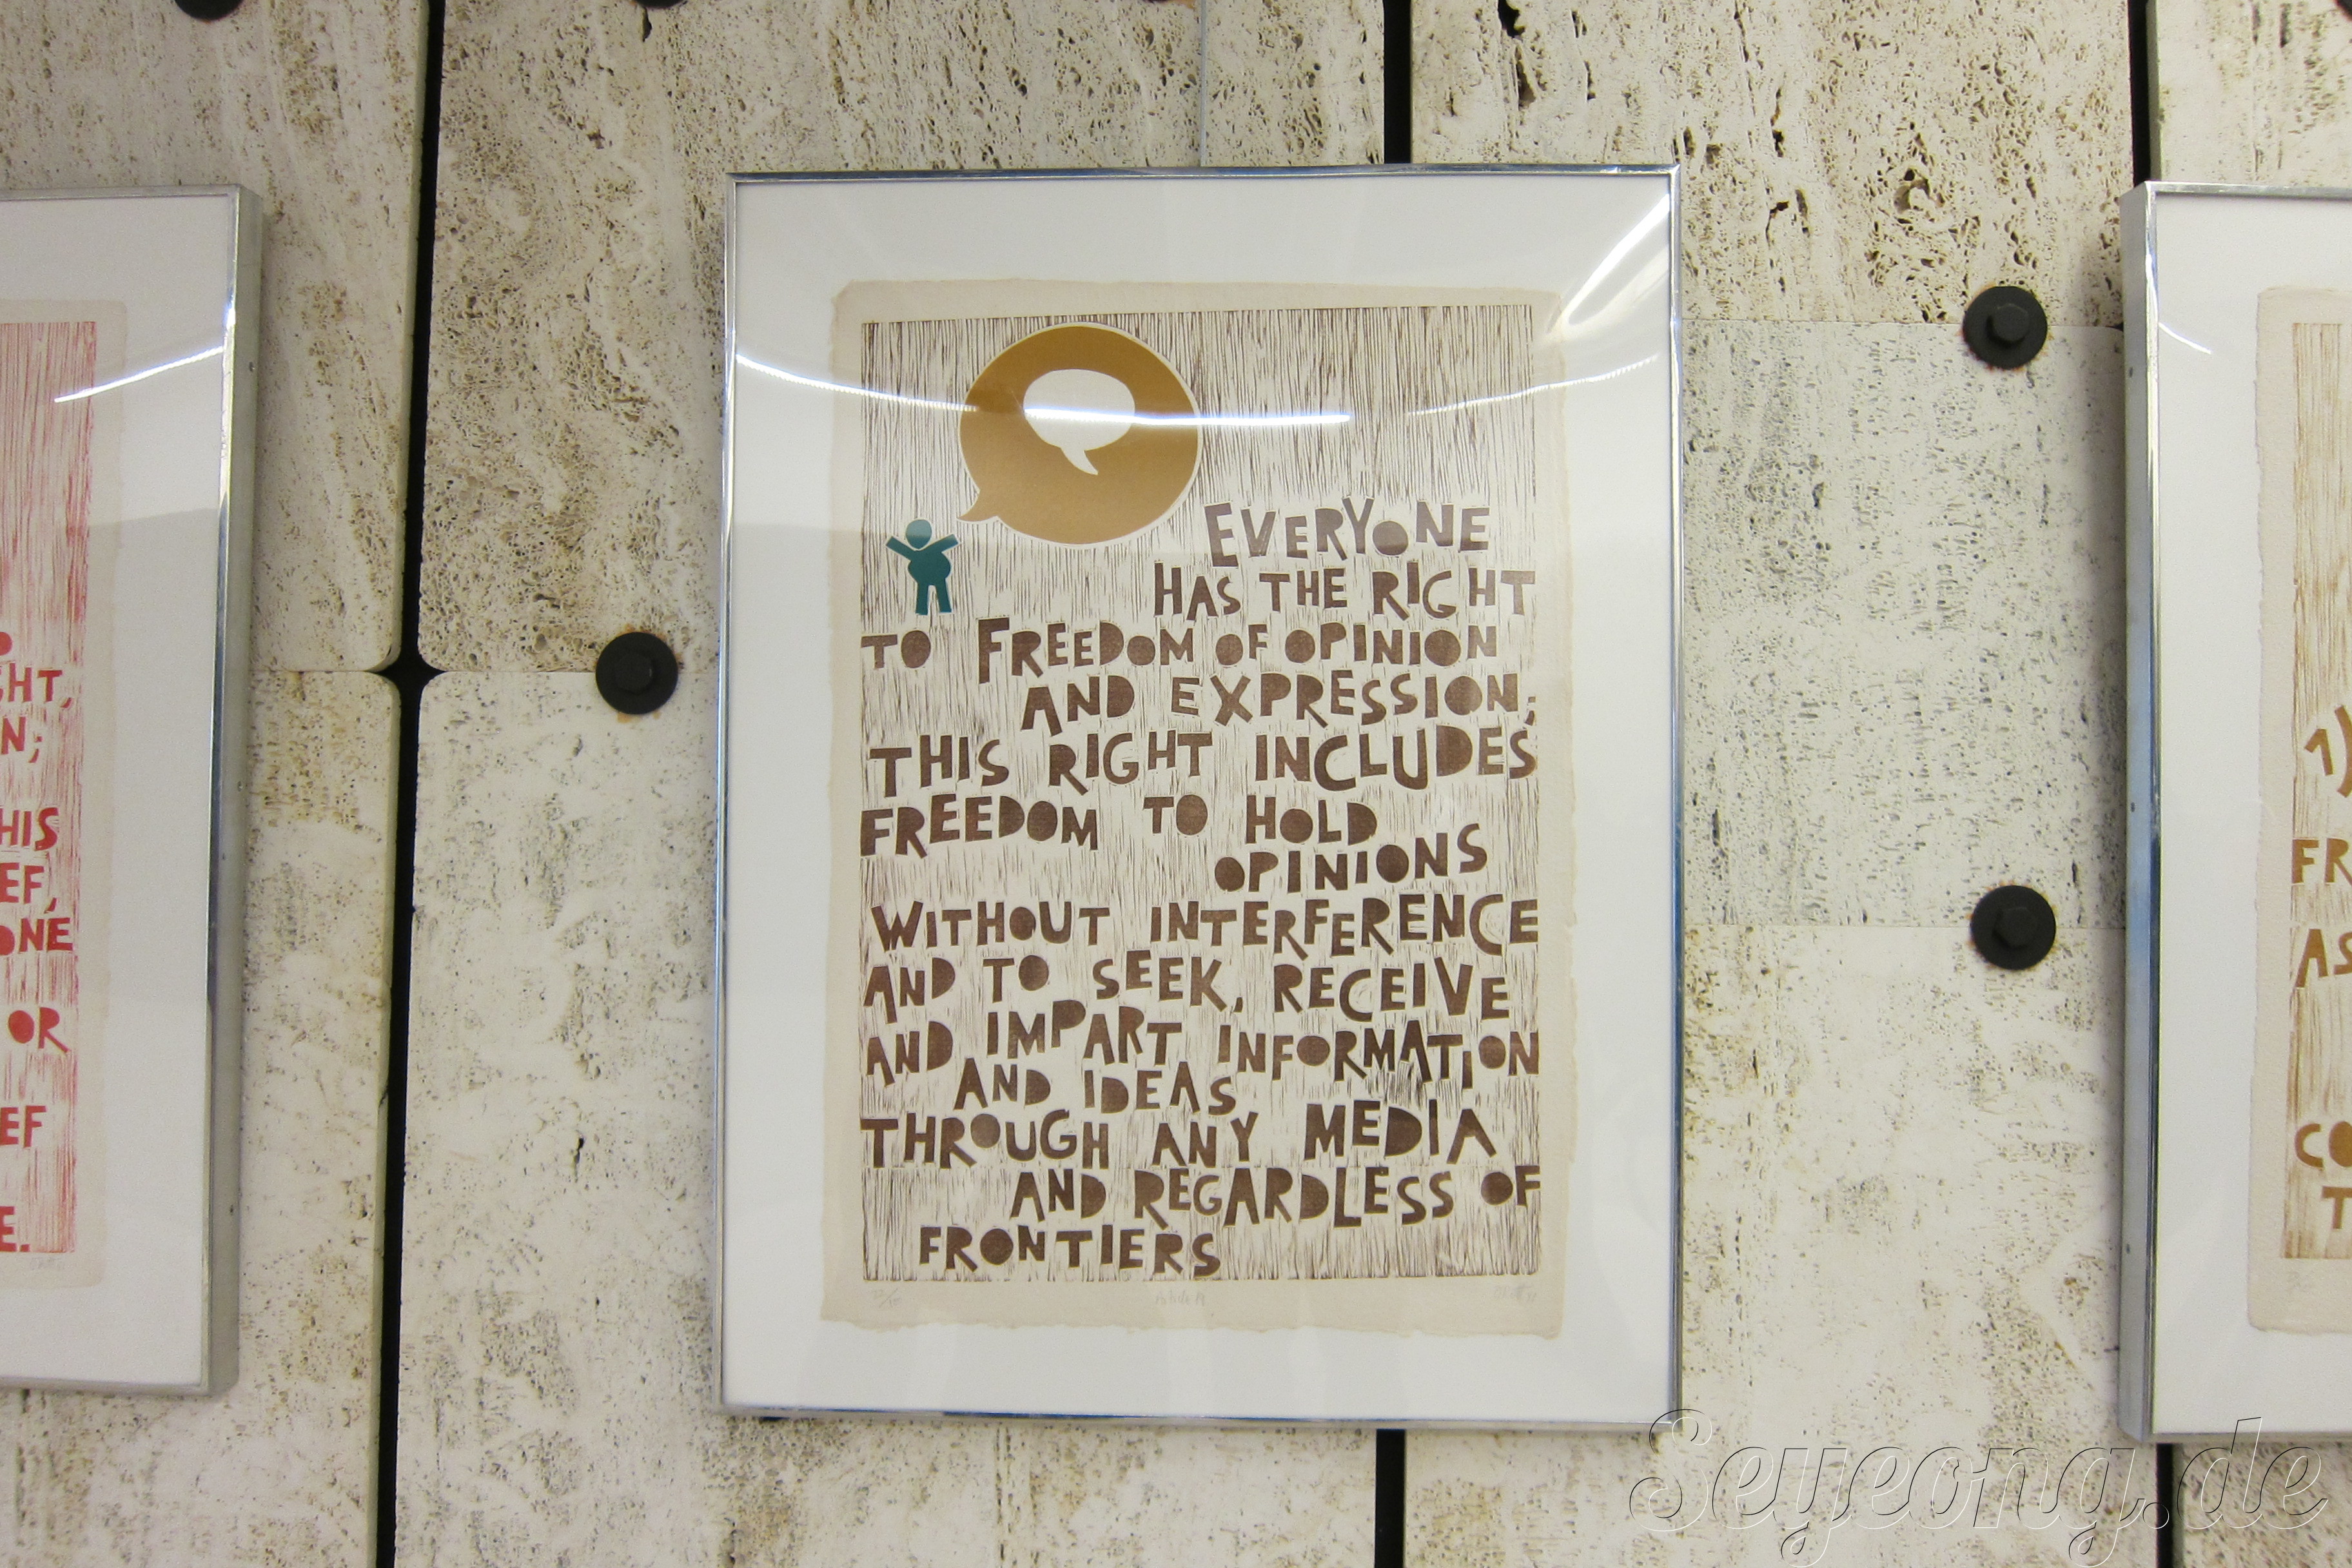 EVERYONE
HAS THE RIGHT
TO FREEDOM OF OPINION
AND EXPRESSION;
THIS RIGHT INCLUDES
FREEDOM TO HOLD
OPINIONS
WITHOUT INTERFERENCE
AND TO SEEK, RECEIVE
AND IMPART INFORMATION
AND IDEAS
THROUGH ANY MEDIA
AND REGARDLESS OF
FRONTIERS
GHT,
N;
HIS
EF,
ONE
OR
EF
E.
1)
FR
AS
CO
T
Seyeong.de